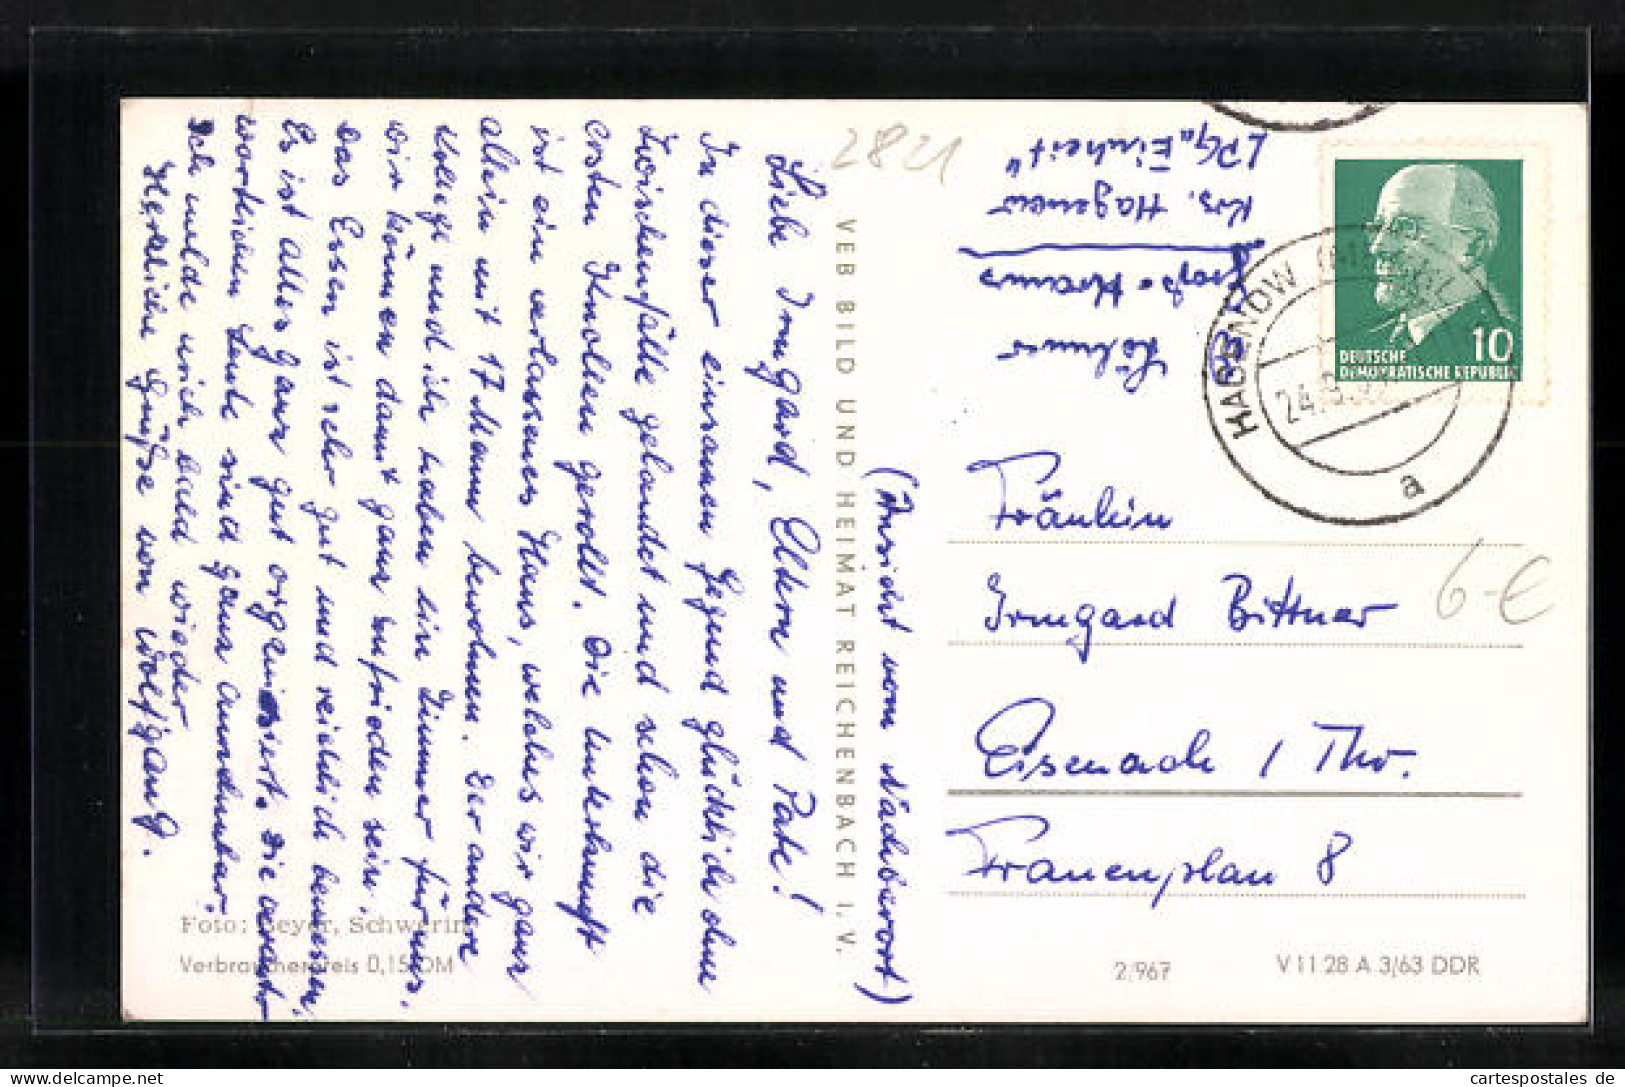 Liebe Irmgard, Eltern und Pate!
In dieser einsamen Gegend glücklich ohne
Zwischenfälle gelandet und schon die
ersten Knollen gerollt. Die Unterkunft
ist ein verlassenes Haus, welches wir ganz
allein mit 17 Mann bewohnen. Der andere
Kollege und ich haben ein Zimmer für uns.
wir können damit ganz zufrieden sein.
Das Essen ist sehr gut und reichlich bemessen.
Es ist alles ganz gut organisiert. Die
wortlichen Leute sind ganz annehmbar.
Ich melde mich bald wieder
Herzliche Grüße von Wolfgang.
(Ansicht vom Nachbarort)
VEB BILD UND HEIMAT REICHENBACH I. V.
2821
Krams
Krs. Hagenow
LPG „Einheit"
DEUTSCHE
DEMOKRATISCHE REPUBLIK
10
HAGENOW
24.9.
a
Fräulein
Irmgard Bittner
Eisenach / Thür.
Frauenplan 8
6-€
Foto: Beyer, Schwerin
Verbraucherpreis 0,15 DM
2/967
V 11 28 A 3/63 DDR
cartespostales.de